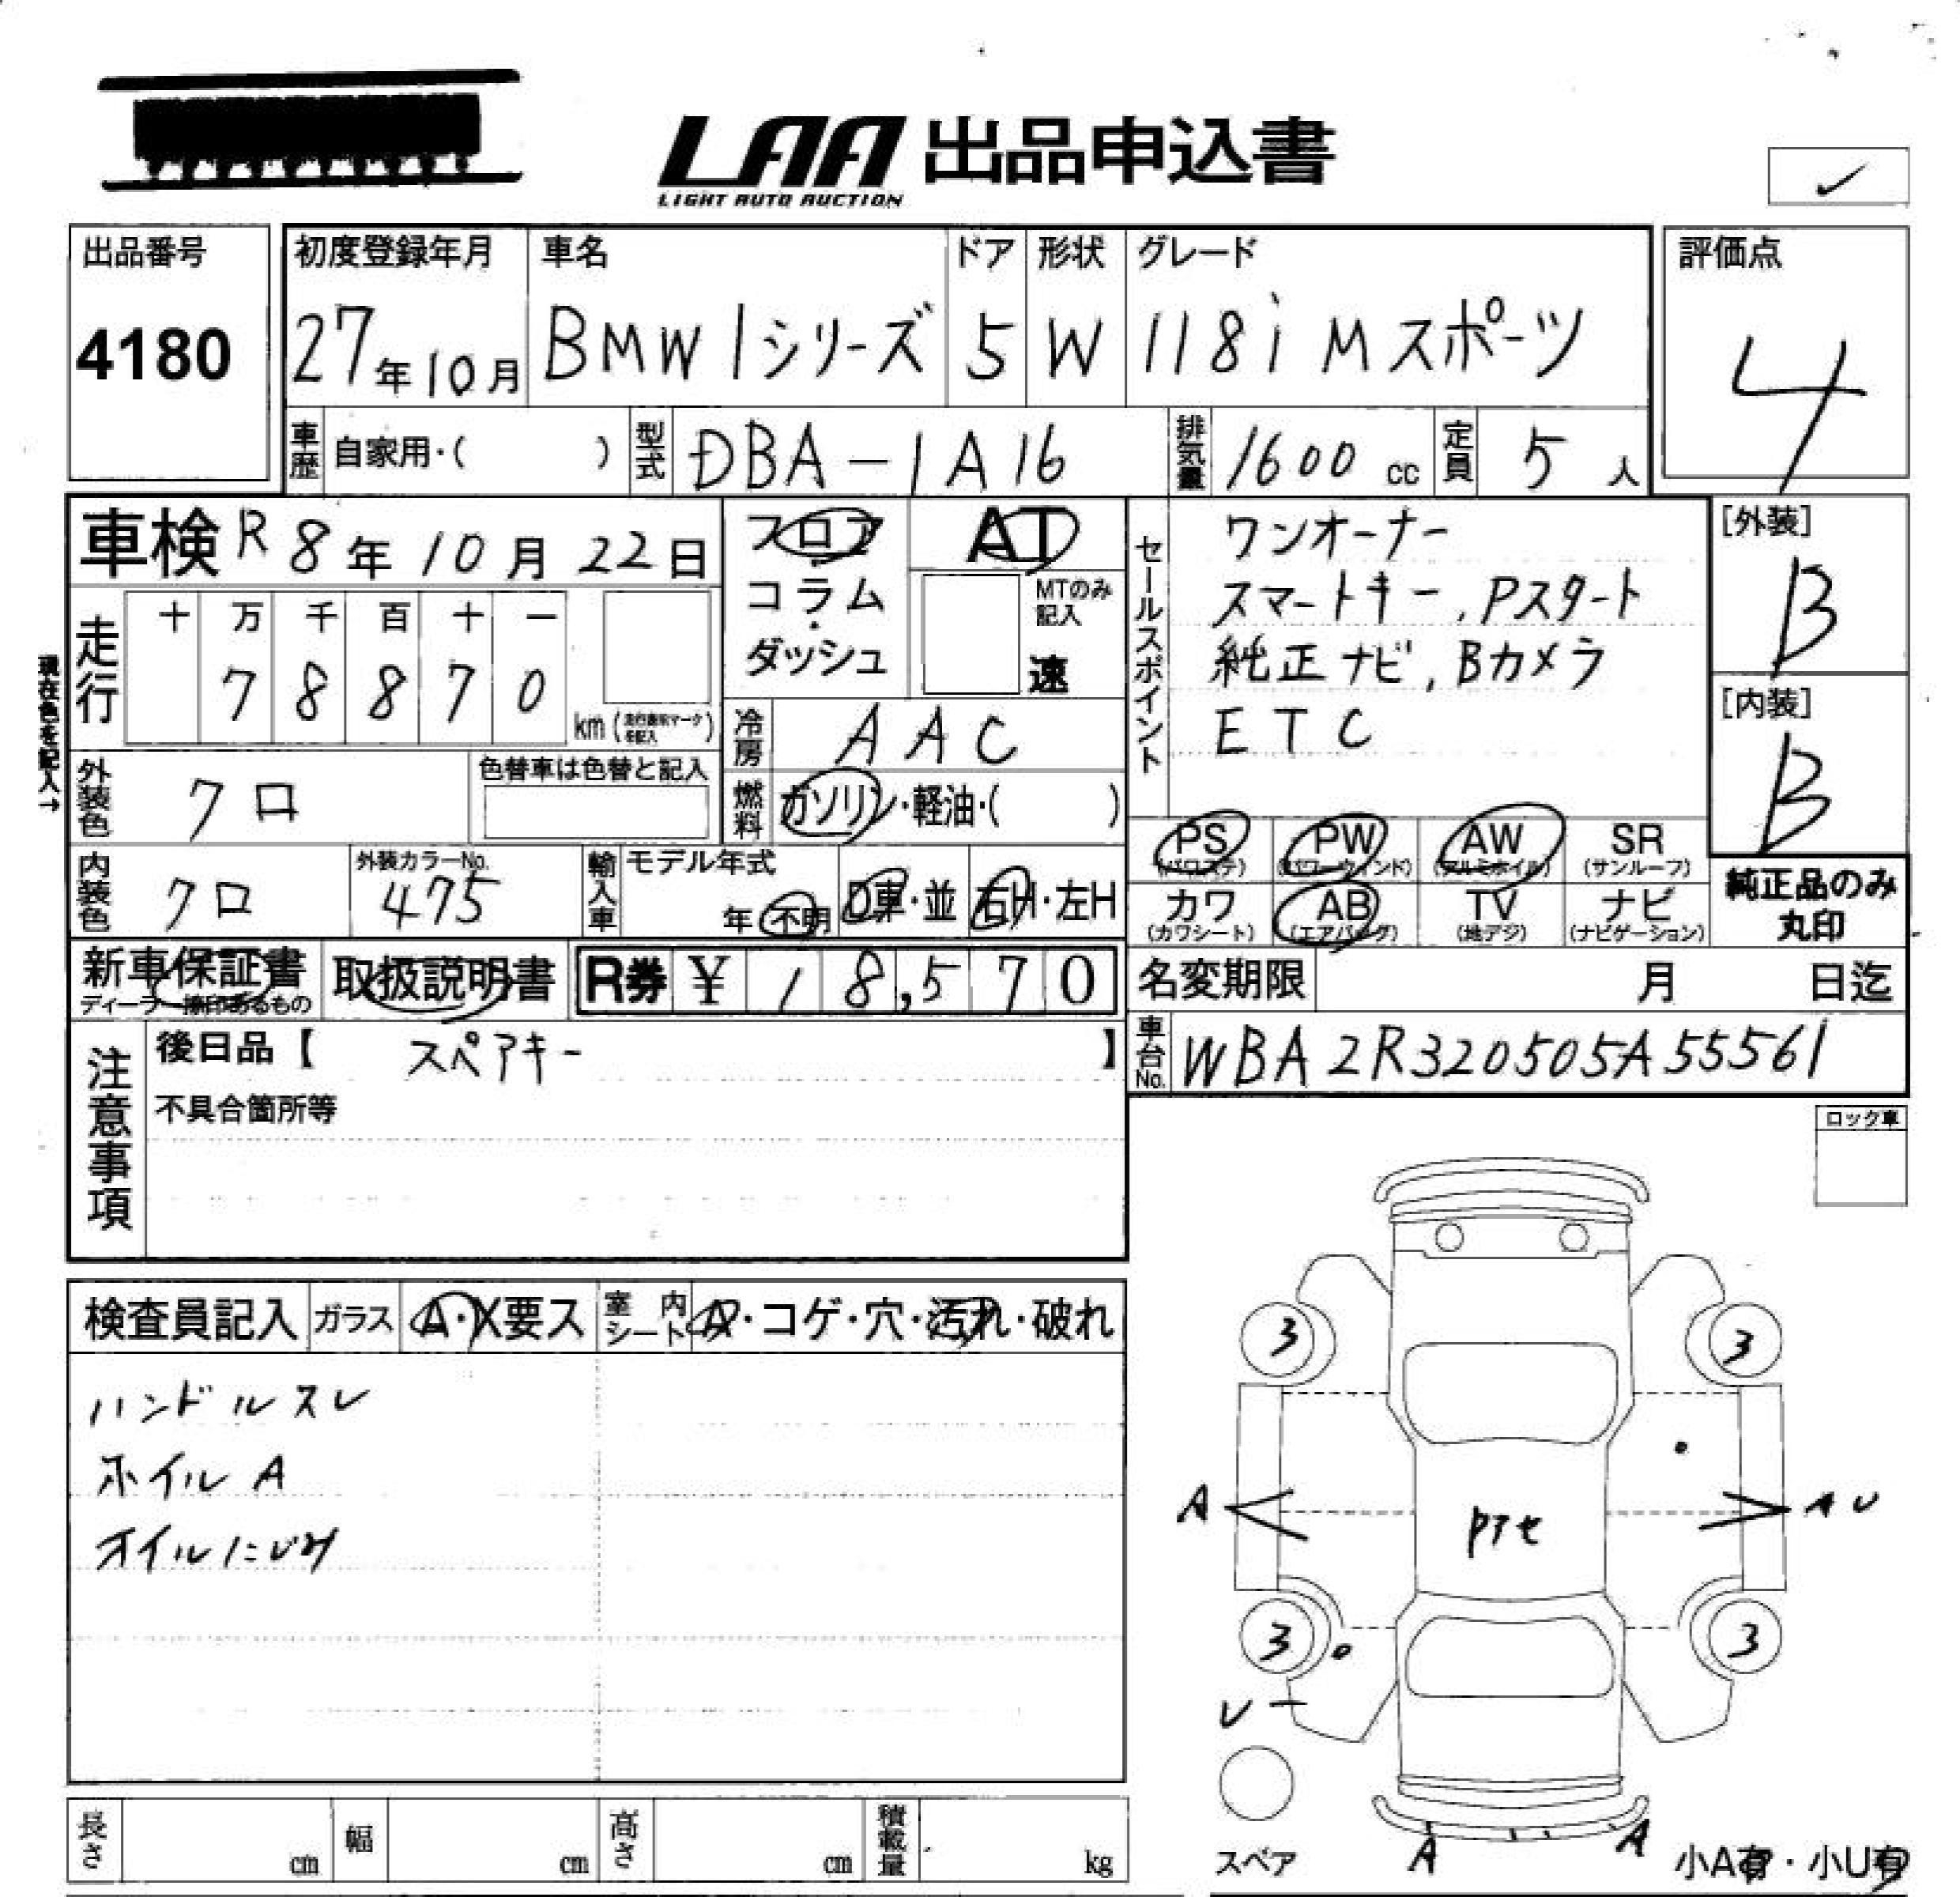 LAA 出品申込書
LIGHT AUTO AUCTION
✓
出品番号
4180
初度登録年月 車名 ドア 形状 グレード
27年10月 BMW 1シリーズ 5 W 118i Mスポーツ
評価点
4
車歴 自家用・( ) 型式 DBA-1A16 排気量 1600 cc 定員 5 人
車検 R8年10月22日
フロア
コラム
ダッシュ
AT
MTのみ記入
速
セールスポイント
ワンオーナー
スマートキー, Pスタート
純正ナビ, Bカメラ
ETC
[外装]
B
[内装]
B
走行 十 万 千 百 十 一
7 8 8 7 0
km
現在色を記入→
冷房 AAC
外装色 クロ 色替車は色替と記入
燃料 ガソリン・軽油・( )
内装色 クロ 外装カラーNo. 475
輸入車 モデル年式 年 不明 D車・並 右H・左H
PS PW AW SR
(パワステ) (パワーウィンド) (アルミホイル) (サンルーフ)
カワ AB TV ナビ
(カワシート) (エアバッグ) (地デジ) (ナビゲーション)
純正品のみ
丸印
新車保証書 取扱説明書 R券 ¥ 18,570
名変期限 月 日迄
車台No. WBA2R320505A55561
注意事項
後日品【 スペアキー 】
不具合箇所等
ロック車
検査員記入 ガラス A・X要ス 室内シート A・コゲ・穴・汚れ・破れ
ハンドルスレ
ホイルA
オイルにじみ
3 3
A Pアセ A U
3 3
U
スペア
A A
小A有・小U有
長さ cm 幅 cm 高さ cm 積載量 kg